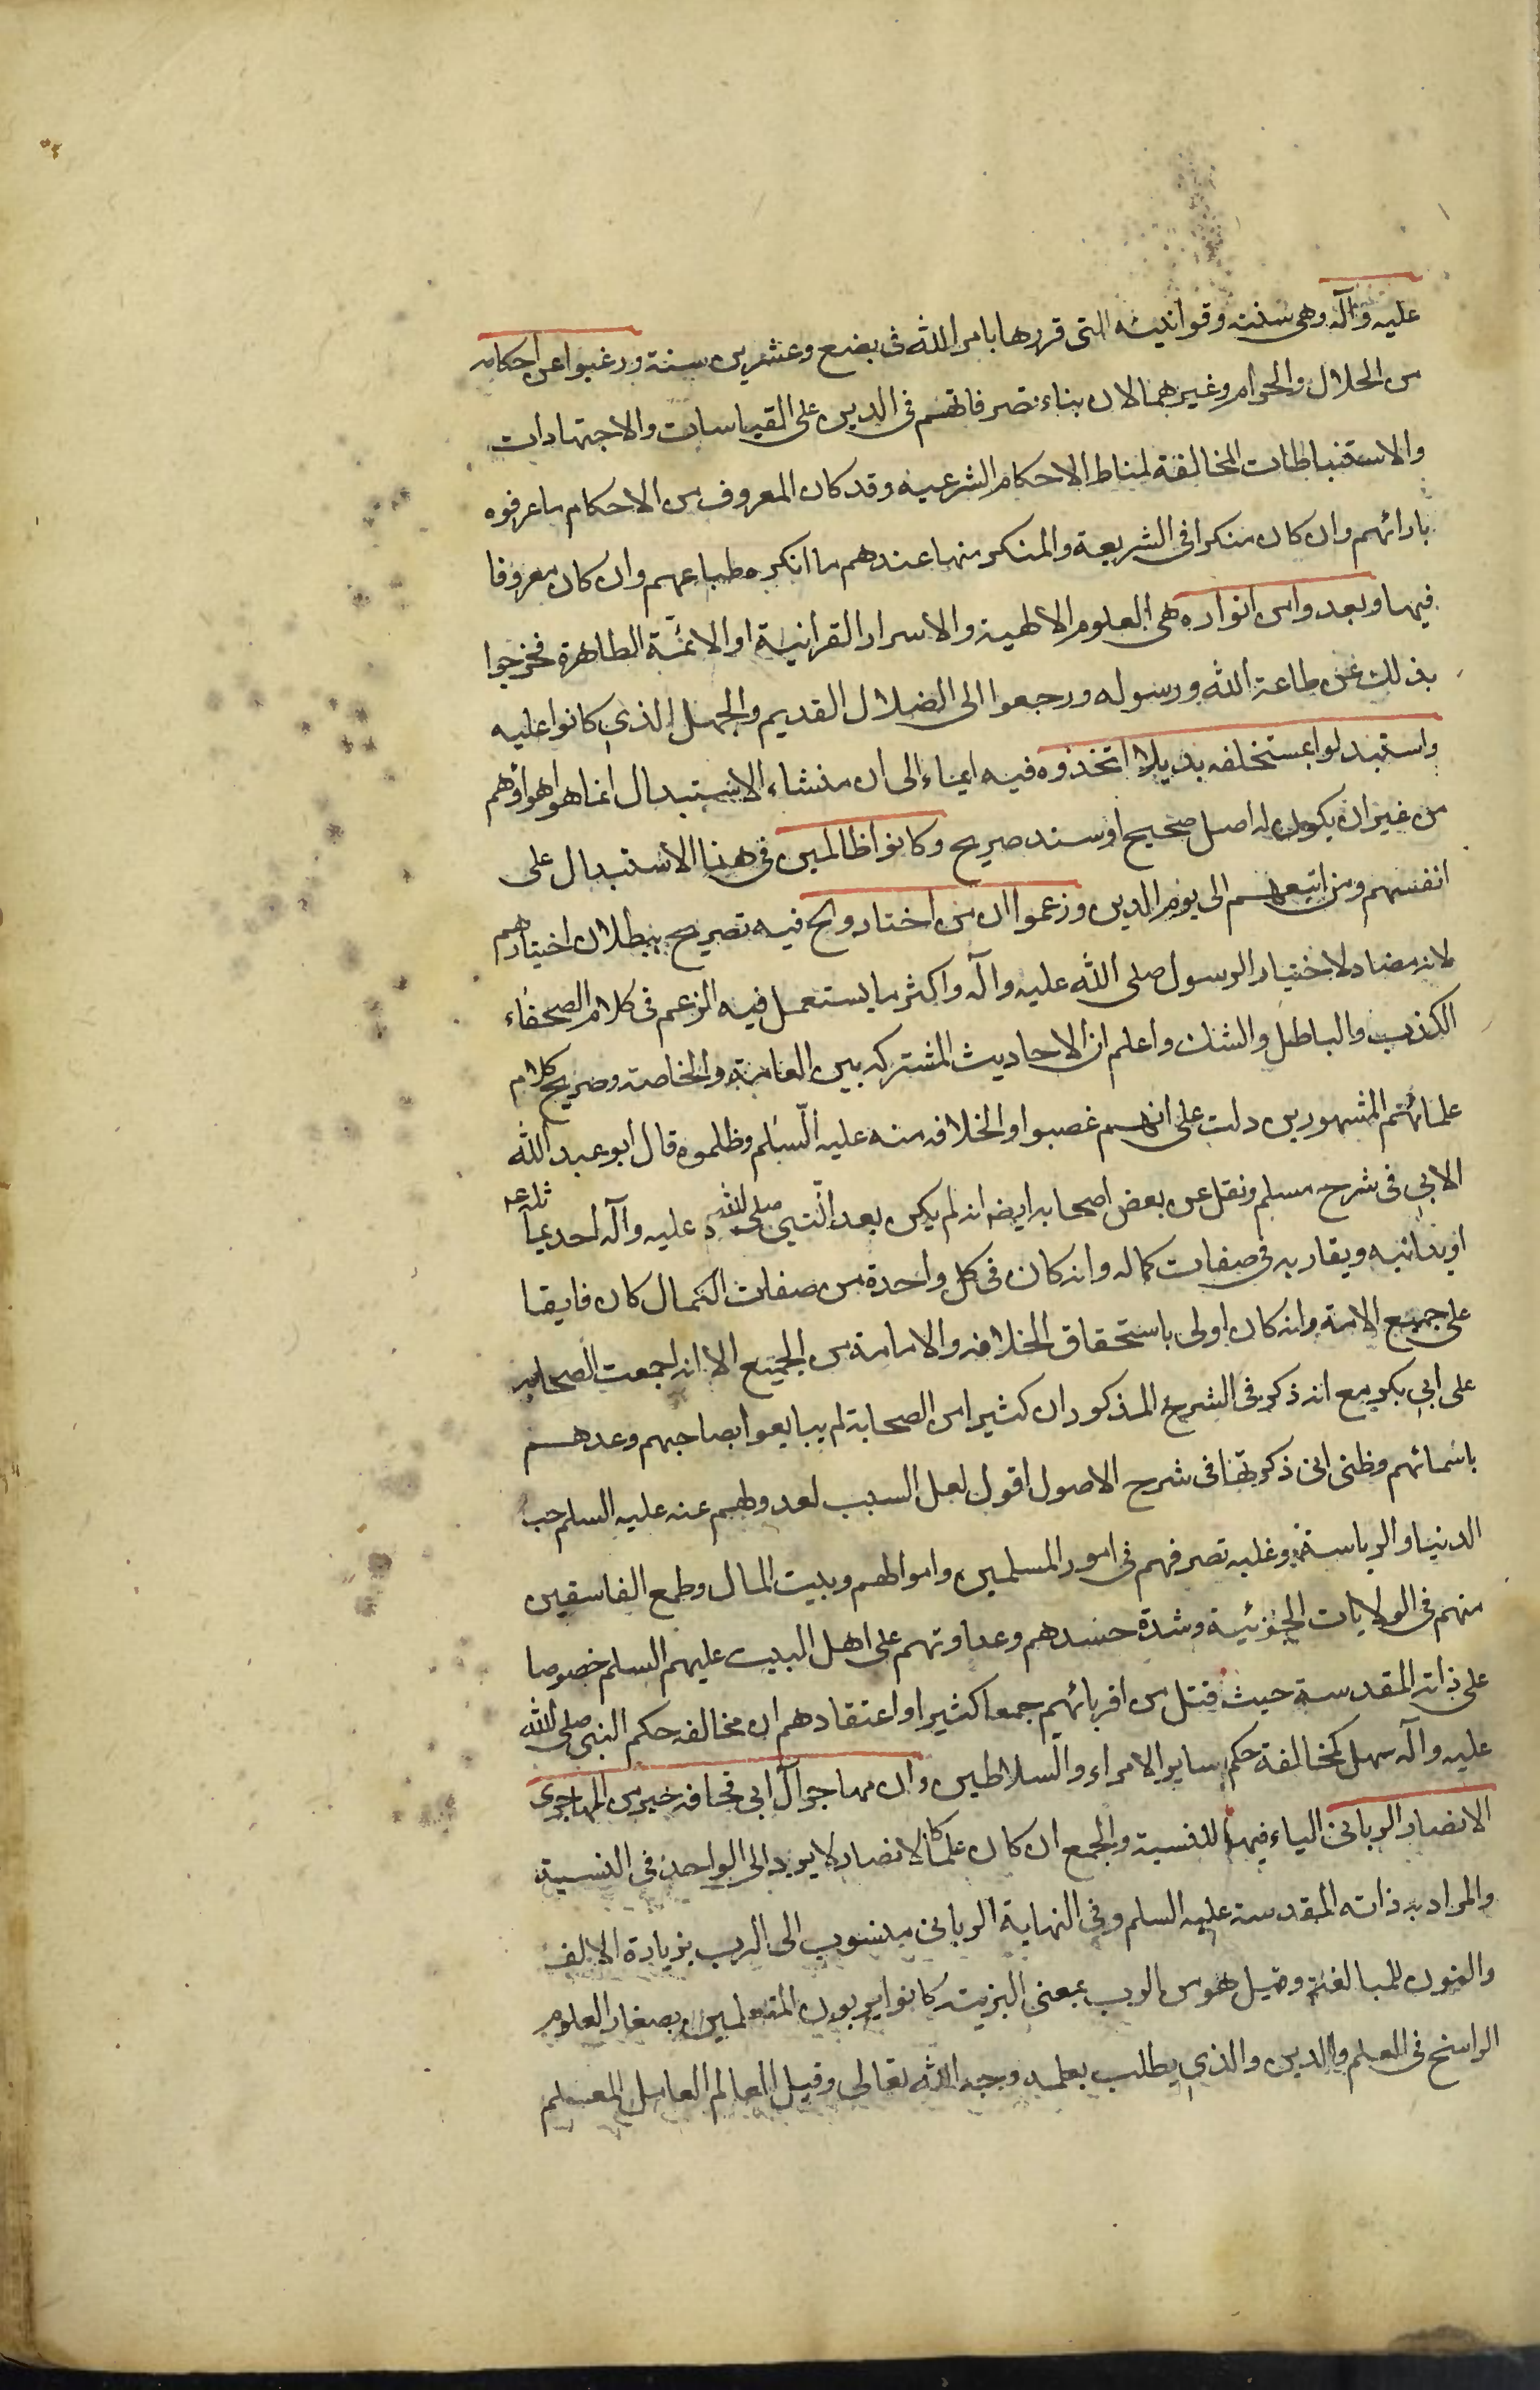 عليه وآله وهى سننه وقوانينه التى قررها بامر الله فى بضع وعشرين سنة ورغبوا عن احكامه
من الحلال والحرام وغيرهما لان بناء تصرفاتهم فى الدين على القياسات والاجتهادات
والاستنباطات المخالفة لمناط الاحكام الشرعيه وقد كان المعروف من الاحكام ما عرفوه
بارائهم وان كان منكرا فى الشريعة والمنكر منها عندهم ما انكره طباعهم وان كان معروفا
فيها وبعدوا من انواره هى العلوم الالهية والاسرار القرانية او الائمّة الطاهرة فخرجوا
بذلك عن طاعة الله ورسوله ورجعوا الى الضلال القديم والجهل الذي كانوا عليه
واستبدلوا بمستخلفه بديلا اتخذوه فيه ايماء الى ان منشاء الاستبدال انما هو اهواؤهم
من غير ان يكون له اصل صحيح او سند صريح وكانوا ظالمين فى هذا الاستبدال على
انفسهم ومن اتبعهم الى يوم الدين وزعموا ان من اختاروا الخ فيه تصريح ببطلان اختيارهم
لانه مضاد لاختيار الرسول صلى الله عليه وآله واكثر ما يستعمل فيه الزعم فى كلام الفصحاء
الكذب والباطل والشك واعلم ان الاحاديث المشتركه بين العامة والخاصة وصريح كلام
علمائهم المشهورين دلت على انهم غصبوا الخلافه منه عليه السّلم وظلموه قال ابو عبد الله
الابي فى شرح مسلم ونقل عن بعض اصحابه ايضا انه لم يكن بعد النّبي صلى الله عليه وآله احد يماثله
او يدانيه ويقاربه فى صفات كماله وانه كان فى كل واحدة من صفات الكمال كان فايقا
على جميع الامة وانه كان اولى باستحقاق الخلافه والامامة من الجميع الا انه اجمعت الصحابه
على ابي بكر مع انه ذكر فى الشرح المذكور ان كثيرا من الصحابة لم يبايعوا بصاحبهم وعدهم
باسمائهم وظنى انى ذكرتها فى شرح الاصول اقول لعل السبب لعدولهم عنه عليه السلم حب
الدنيا والرياسة وغلبه تصرفهم فى امور المسلمين واموالهم وبيت المال وطمع الفاسقين
منهم فى الولايات الجزئية وشدة حسدهم وعداوتهم على اهل البيت عليهم السلم خصوصا
على ذاته المقدسة حيث قتل من اقربائهم جمعا كثيرا واعتقادهم ان مخالفه حكم النبى صلى الله
عليه وآله سهل كمخالفة حكم ساير الامراء والسلاطين وان مهاجر آل ابى قحافه خير من المهاجرى
الانصار الربانى الياء فيهما للنسبة والجمع ان كان علما كالانصار لا يرد الى الواحد فى النسبة
والمراد به ذاته المقدسة عليه السلم وفى النهاية الربانى منسوب الى الرب بزيادة الالف
والنون للمبالغة وقيل هو من الرب بمعنى التربيت كانوا يربون المتعلمين بصغار العلوم
الراسخ فى العلم والدين والذي يطلب بعلمه وجه الله تعالى وقيل العالم العامل المعلم